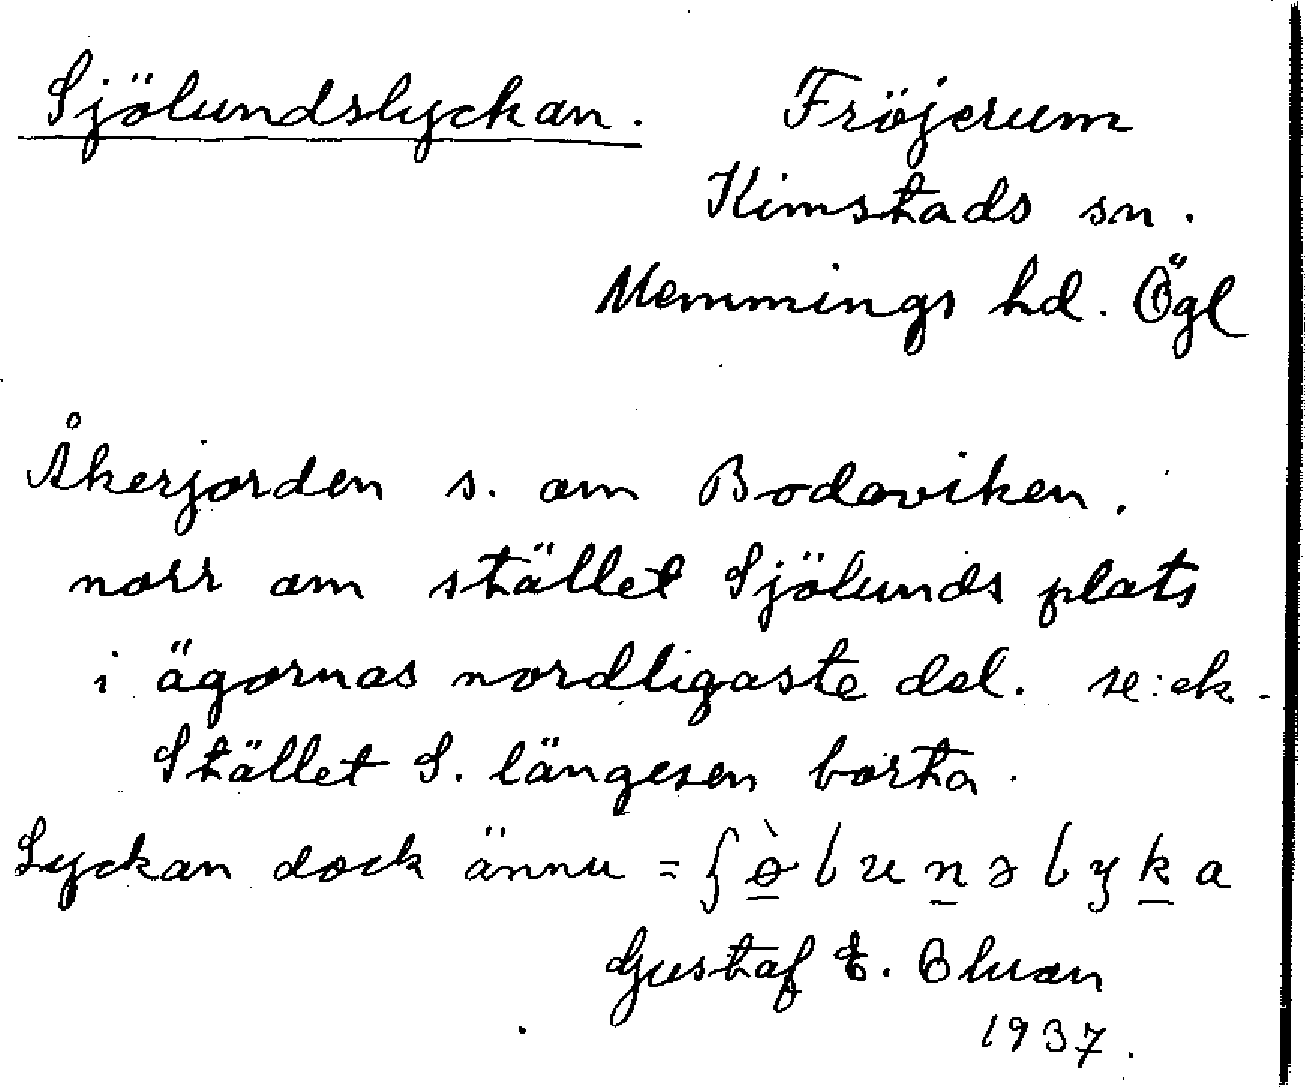 Sjölundslyckan. Fröjerum
Kimstads sn.
Memmings hd. Ögl
Åkerjorden s. om Bodaviken.
norr om stället Sjölunds plats
i ägornas nordligaste del. se: ek.
Stället S. längesen borta.
Lyckan dock ännu = ʃø̀lunslyka
Gustaf E.
1937.